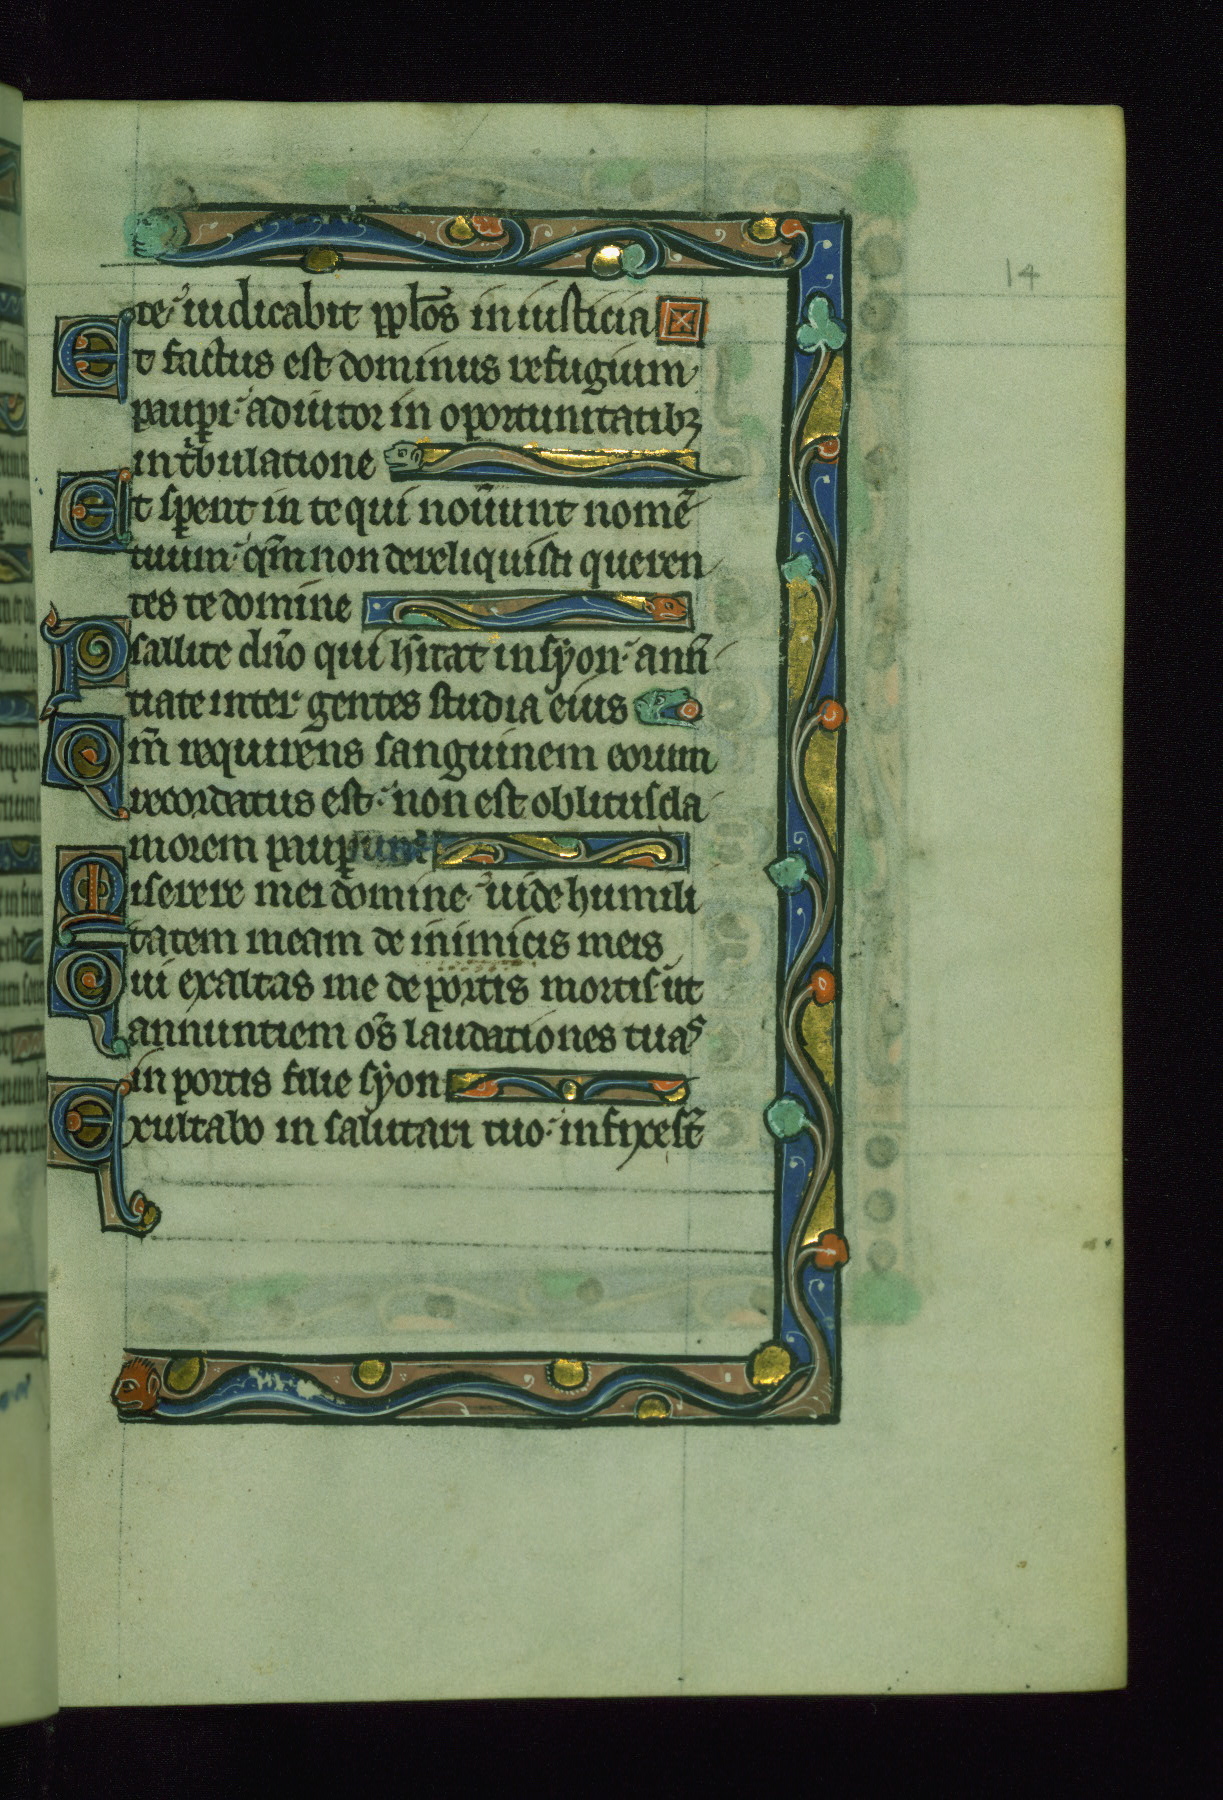 14
te· iudicabit pplōs in iusticia
Et factus est dominus refugium
pauꝑi· adiutor in oportunitatibꝫ
in tͥbulatione
Et sꝑent in te qui nou̅unt nomē
tuum· qm̅ non dereliquisti queren
tes te domine
Psallite dn̅o qui hi̅tat in syon· ann̅
tiate inter gentes studia eius
Qm̅ requirens sanguinem eorum
recordatus est· non est oblitus cla
morem pauꝑum
Miserere mei domine· uide humili
tatem meam de inimicis meis
Qui exaltas me de portis mortis ut
annuntiem om̅s laudationes tuas
in portis filie syon
Exultabo in salutari tuo· infixe st̅